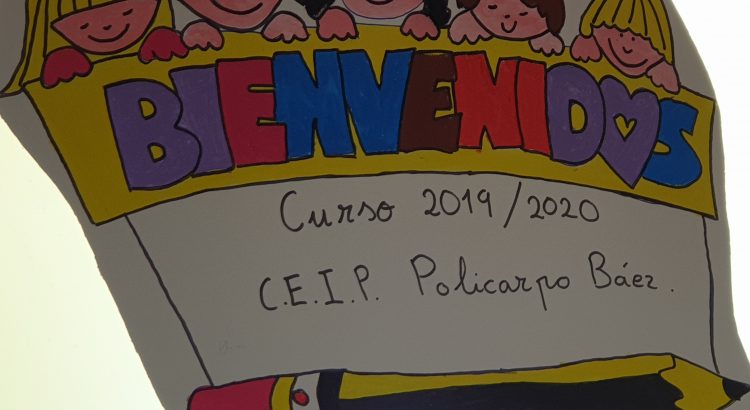 BIENVENIDOS
Curso 2019/2020
C.E.I.P. Policarpo Báez.